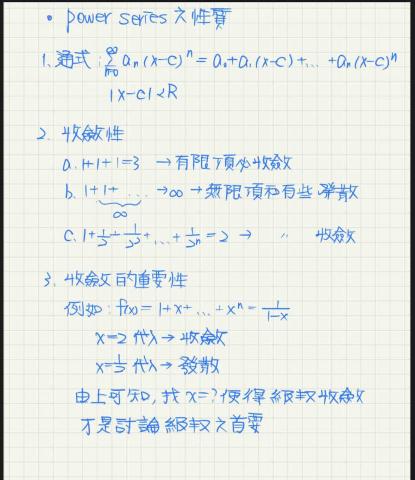 • power series 之性質
1. 通式: ∞ Σ n=0 aₙ(x-c)ⁿ = a₀+a₁(x-c)+...+aₙ(x-c)ⁿ
|x-c|<R
2. 收斂性
a. 1+1+1=3 → 有限項必收斂
b. 1+1+ ... →∞ → 無限項和有些發散
∞
c. 1+1/2+1/2²+...+1/2ⁿ=2 → 〃 收斂
3. 收斂的重要性
例如: f(x)=1+x+...+xⁿ=1/1-x
x=2 代入→收斂
x=1/2 代入→發散
由上可知, 找 x=? 使得級數收斂
才是討論級數之首要